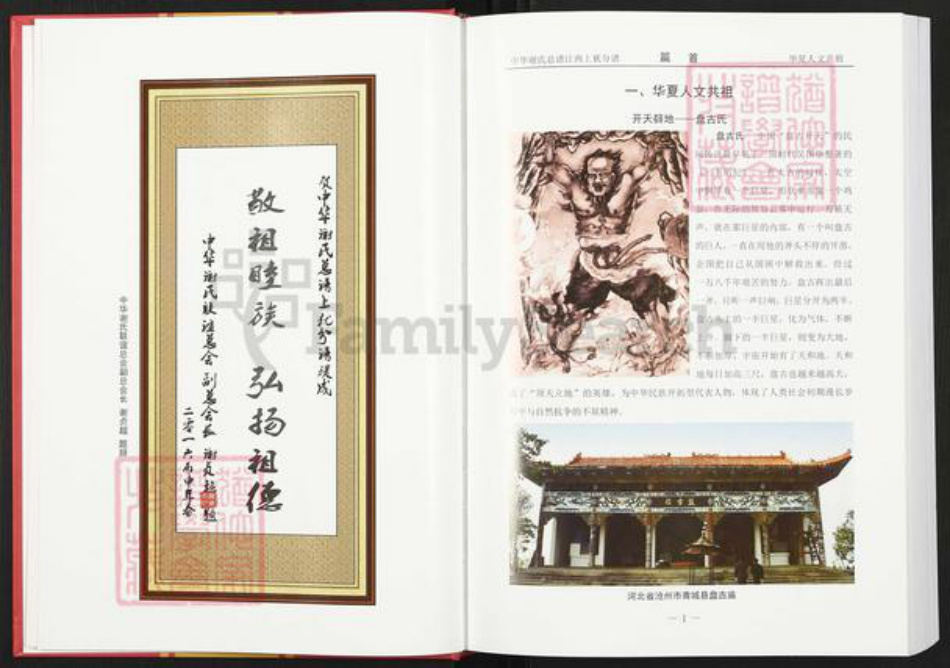 贺中华谢氏总谱上犹分谱撰成
敬祖睦族 弘扬祖德
中华谢氏联谊总会副总会长 谢贞超 题
二零一六丙申年冬
中华谢氏联谊总会副总会长 谢贞超 题辞
中华谢氏总谱江西上犹分谱 篇 首 华夏人文共祖
一、华夏人文共祖
开天辟地——盘古氏
盘古氏 中国“盘古开天”的民
声。就在那巨星的内部，有一个叫盘古
的巨人，一直在用他的斧头不停的开凿，
企图把自己从围困中解救出来。经过
一万八千年艰苦的努力，盘古挥出最后
一斧，只听一声巨响，巨星分开为两半。
盘古头上的一半巨星，化为气体，不断
上升；脚下的一半巨星，则变为大地，
不断加厚，宇宙开始有了天和地。天和
地每日加高三尺，盘古也越来越高大，
成了“顶天立地”的英雄。为中华民族开拓型代表人物，体现了人类社会初期漫长岁
月中与自然抗争的不屈精神。
河北省沧州市青城县盘古庙
— 1 —
FamilySearch